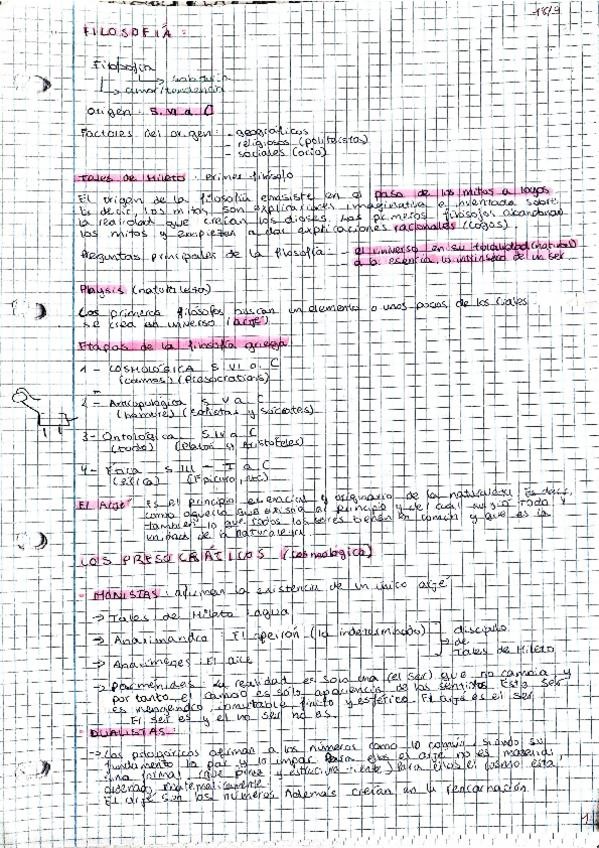 18/9
FILOSOFÍA:
Filosofía
→ sabiduría
→ amor/tendencia
Origen: S. VI a. C
Factores del origen: - geográficos
- religiosos (politeístas)
- sociales (ocio)
Tales de Mileto: Primer filósofo
El origen de la filosofía consiste en el paso de los mitos a logos
Es decir, los mitos son explicaciones imaginativa e inventada sobre
la realidad que creían los dioses. Los primeros filósofos abandonan
los mitos y empiezan a dar explicaciones racionales (logos).
Preguntas principales de la filosofía: - el universo en su totalidad (natural)
a la esencia, lo intrínseco de un ser
Physis (naturaleza)
Los primeros filósofos buscan un elemento o unos pocos de los cuales
se crea un universo (arjé)
Etapas de la filosofía griega
1 - COSMOLÓGICA S. VI a. C
(cosmos) (Presocráticos)
2 - Antropológica S. V a C
(hombre) (Sofistas y Sócrates)
3 - Ontológica S. IV a C
(todo) (Platón y Aristóteles)
4 - Ética S. III - I a C
(ética) (Epicuro, etc)
El Arjé: Es el principio esencial y originario de la naturaleza. Es decir,
como aquello que existía al principio y del cual surgió TODO y
también lo que todos los seres tienen en común y que es la
de la naturaleza.
LOS PRESOCRÁTICOS (Cosmológica)
- MONISTAS: afirman la existencia de un único arjé
→ Tales de Mileto: agua
→ Anaximandro: El apeirón (lo indeterminado) discípulo
→ Anaxímenes: El aire de Tales de Mileto
→ Parménides: La realidad es solo una (el ser) que no cambia y
por tanto, el cambio es solo apariencia de los sentidos. Este Ser
es inengendro, inmutable, finito y esférico. El arjé es el ser.
El ser es y el no ser no es.
- DUALISTAS:
→ Los pitagóricos afirman a los números como lo común, siendo su
fundamento lo par y lo impar. Para ellos el arjé no es material,
sino formal (que pone y estructura) para ellos el cosmo está
ordenado matemáticamente.
El arjé son los números. Además creían en la reencarnación.
1